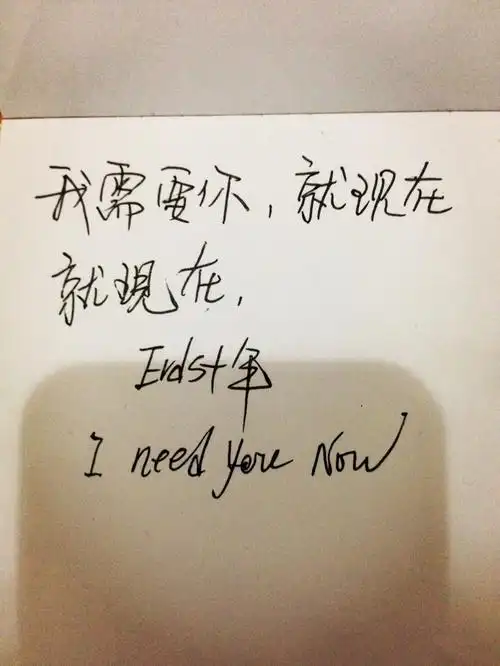 我需要你，就现在
就現在，
I need you Now